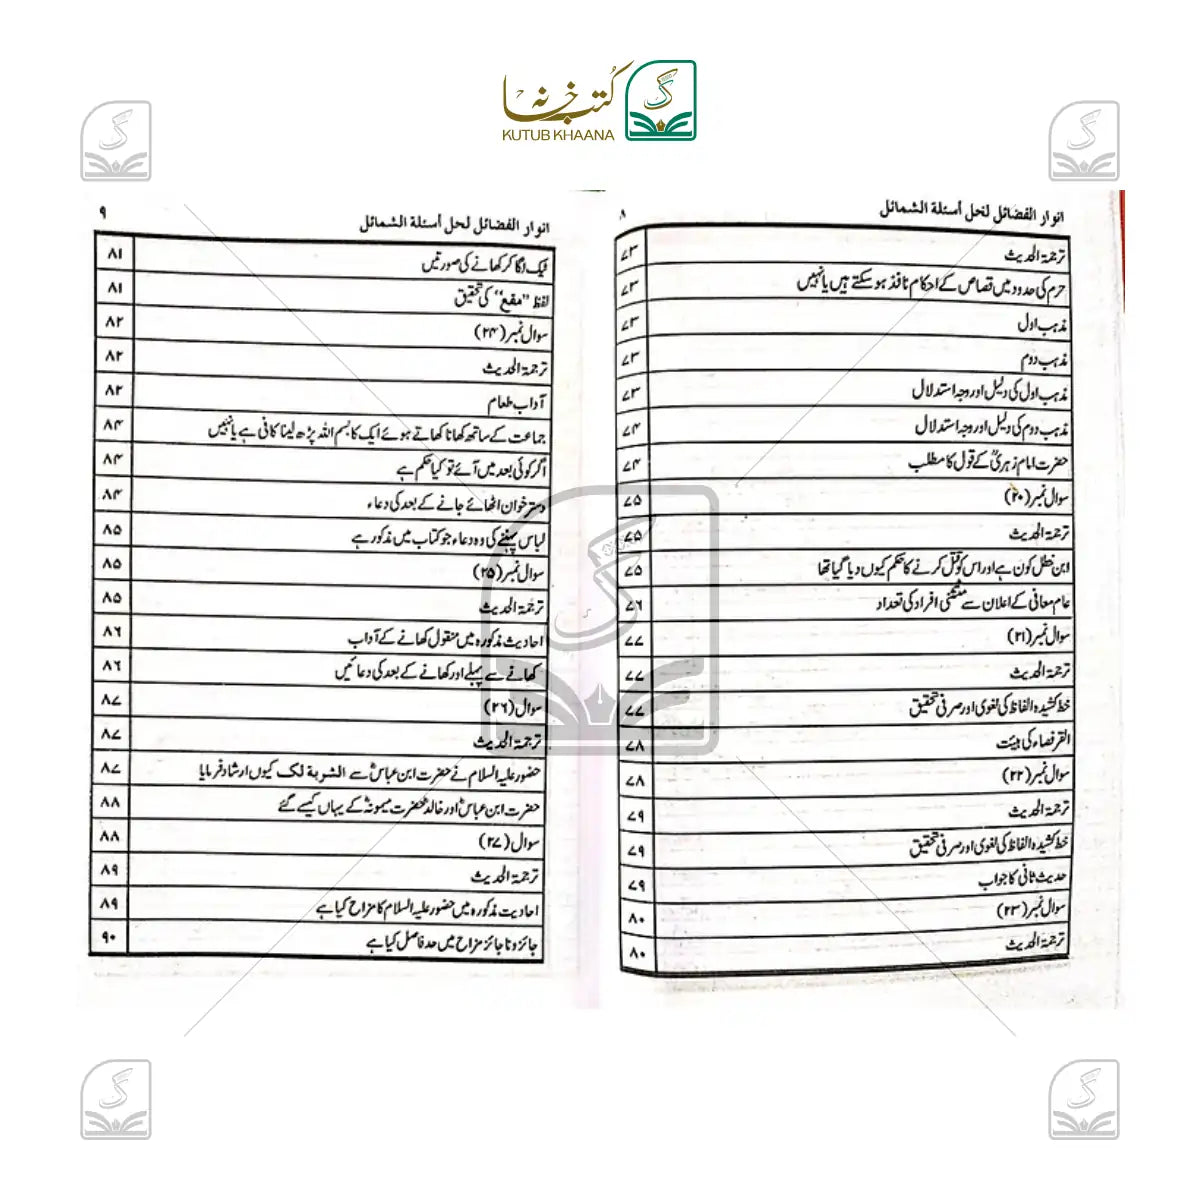 کتب خانہ
KUTUB KHAANA
انوار الفضائل لحل أسئلة الشمائل ۸
ترجمۃ الحدیث ۷۳
حرم کی حدود میں قصاص کے احکام نافذ ہو سکتے ہیں یا نہیں ۷۳
مذہب اول ۷۳
مذہب دوم ۷۳
مذہب اول کی دلیل اور وجہ استدلال ۷۳
مذہب دوم کی دلیل اور وجہ استدلال ۷۴
حضرت امام زہریؒ کے قول کا مطلب ۷۴
سوال نمبر (۲۰) ۷۵
ترجمۃ الحدیث ۷۵
ابن خطل کون ہے اور اس کو قتل کرنے کا حکم کیوں دیا گیا تھا ۷۵
عام معافی کے اعلان سے مستثنی افراد کی تعداد ۷۶
سوال نمبر (۲۱) ۷۷
ترجمۃ الحدیث ۷۷
خط کشیدہ الفاظ کی لغوی اور صرفی تحقیق ۷۷
القرفصاء کی ہیئت ۷۸
سوال نمبر (۲۲) ۷۸
ترجمۃ الحدیث ۷۹
خط کشیدہ الفاظ کی لغوی اور صرفی تحقیق ۷۹
حدیث ثانی کا جواب ۷۹
سوال نمبر (۲۳) ۸۰
ترجمۃ الحدیث ۸۰
انوار الفضائل لحل أسئلة الشمائل ۹
ٹیک لگا کر کھانے کی صورتیں ۸۱
لفظ "مقع" کی تحقیق ۸۱
سوال نمبر (۲۴) ۸۲
ترجمۃ الحدیث ۸۲
آداب طعام ۸۲
جماعت کے ساتھ کھانا کھاتے ہوئے ایک کا بسم اللہ پڑھ لینا کافی ہے یا نہیں ۸۴
اگر کوئی بعد میں آئے تو کیا حکم ہے ۸۴
دستر خوان اٹھائے جانے کے بعد کی دعاء ۸۴
لباس پہننے کی وہ دعاء جو کتاب میں مذکور ہے ۸۵
سوال نمبر (۲۵) ۸۵
ترجمۃ الحدیث ۸۵
احادیث مذکورہ میں منقول کھانے کے آداب ۸۶
کھانے سے پہلے اور کھانے کے بعد کی دعائیں ۸۶
سوال (۲۶) ۸۷
ترجمۃ الحدیث ۸۷
حضور علیہ السلام نے حضرت ابن عباسؓ سے الشربة لك کیوں ارشاد فرمایا ۸۷
حضرت ابن عباسؓ اور خالدؓ حضرت میمونہؓ کے یہاں کیسے گئے ۸۸
سوال (۲۷) ۸۸
ترجمۃ الحدیث ۸۹
احادیث مذکورہ میں حضور علیہ السلام کا مزاح کیا ہے ۸۹
جائز و نا جائز مزاح میں حد فاصل کیا ہے ۹۰